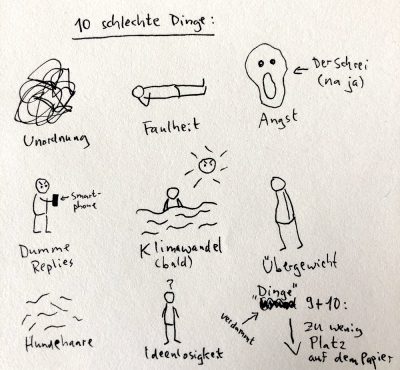 10 schlechte Dinge:
Unordnung
Faulheit
Angst
← Der Schrei
(na ja)
Dumme
Replies
← Smart-
phone
Klimawandel
(bald)
Übergewicht
Hundehaare
?
Ideenlosigkeit
verdammt
Dinge"
" 9+10:
zu wenig
Platz
auf dem Papier